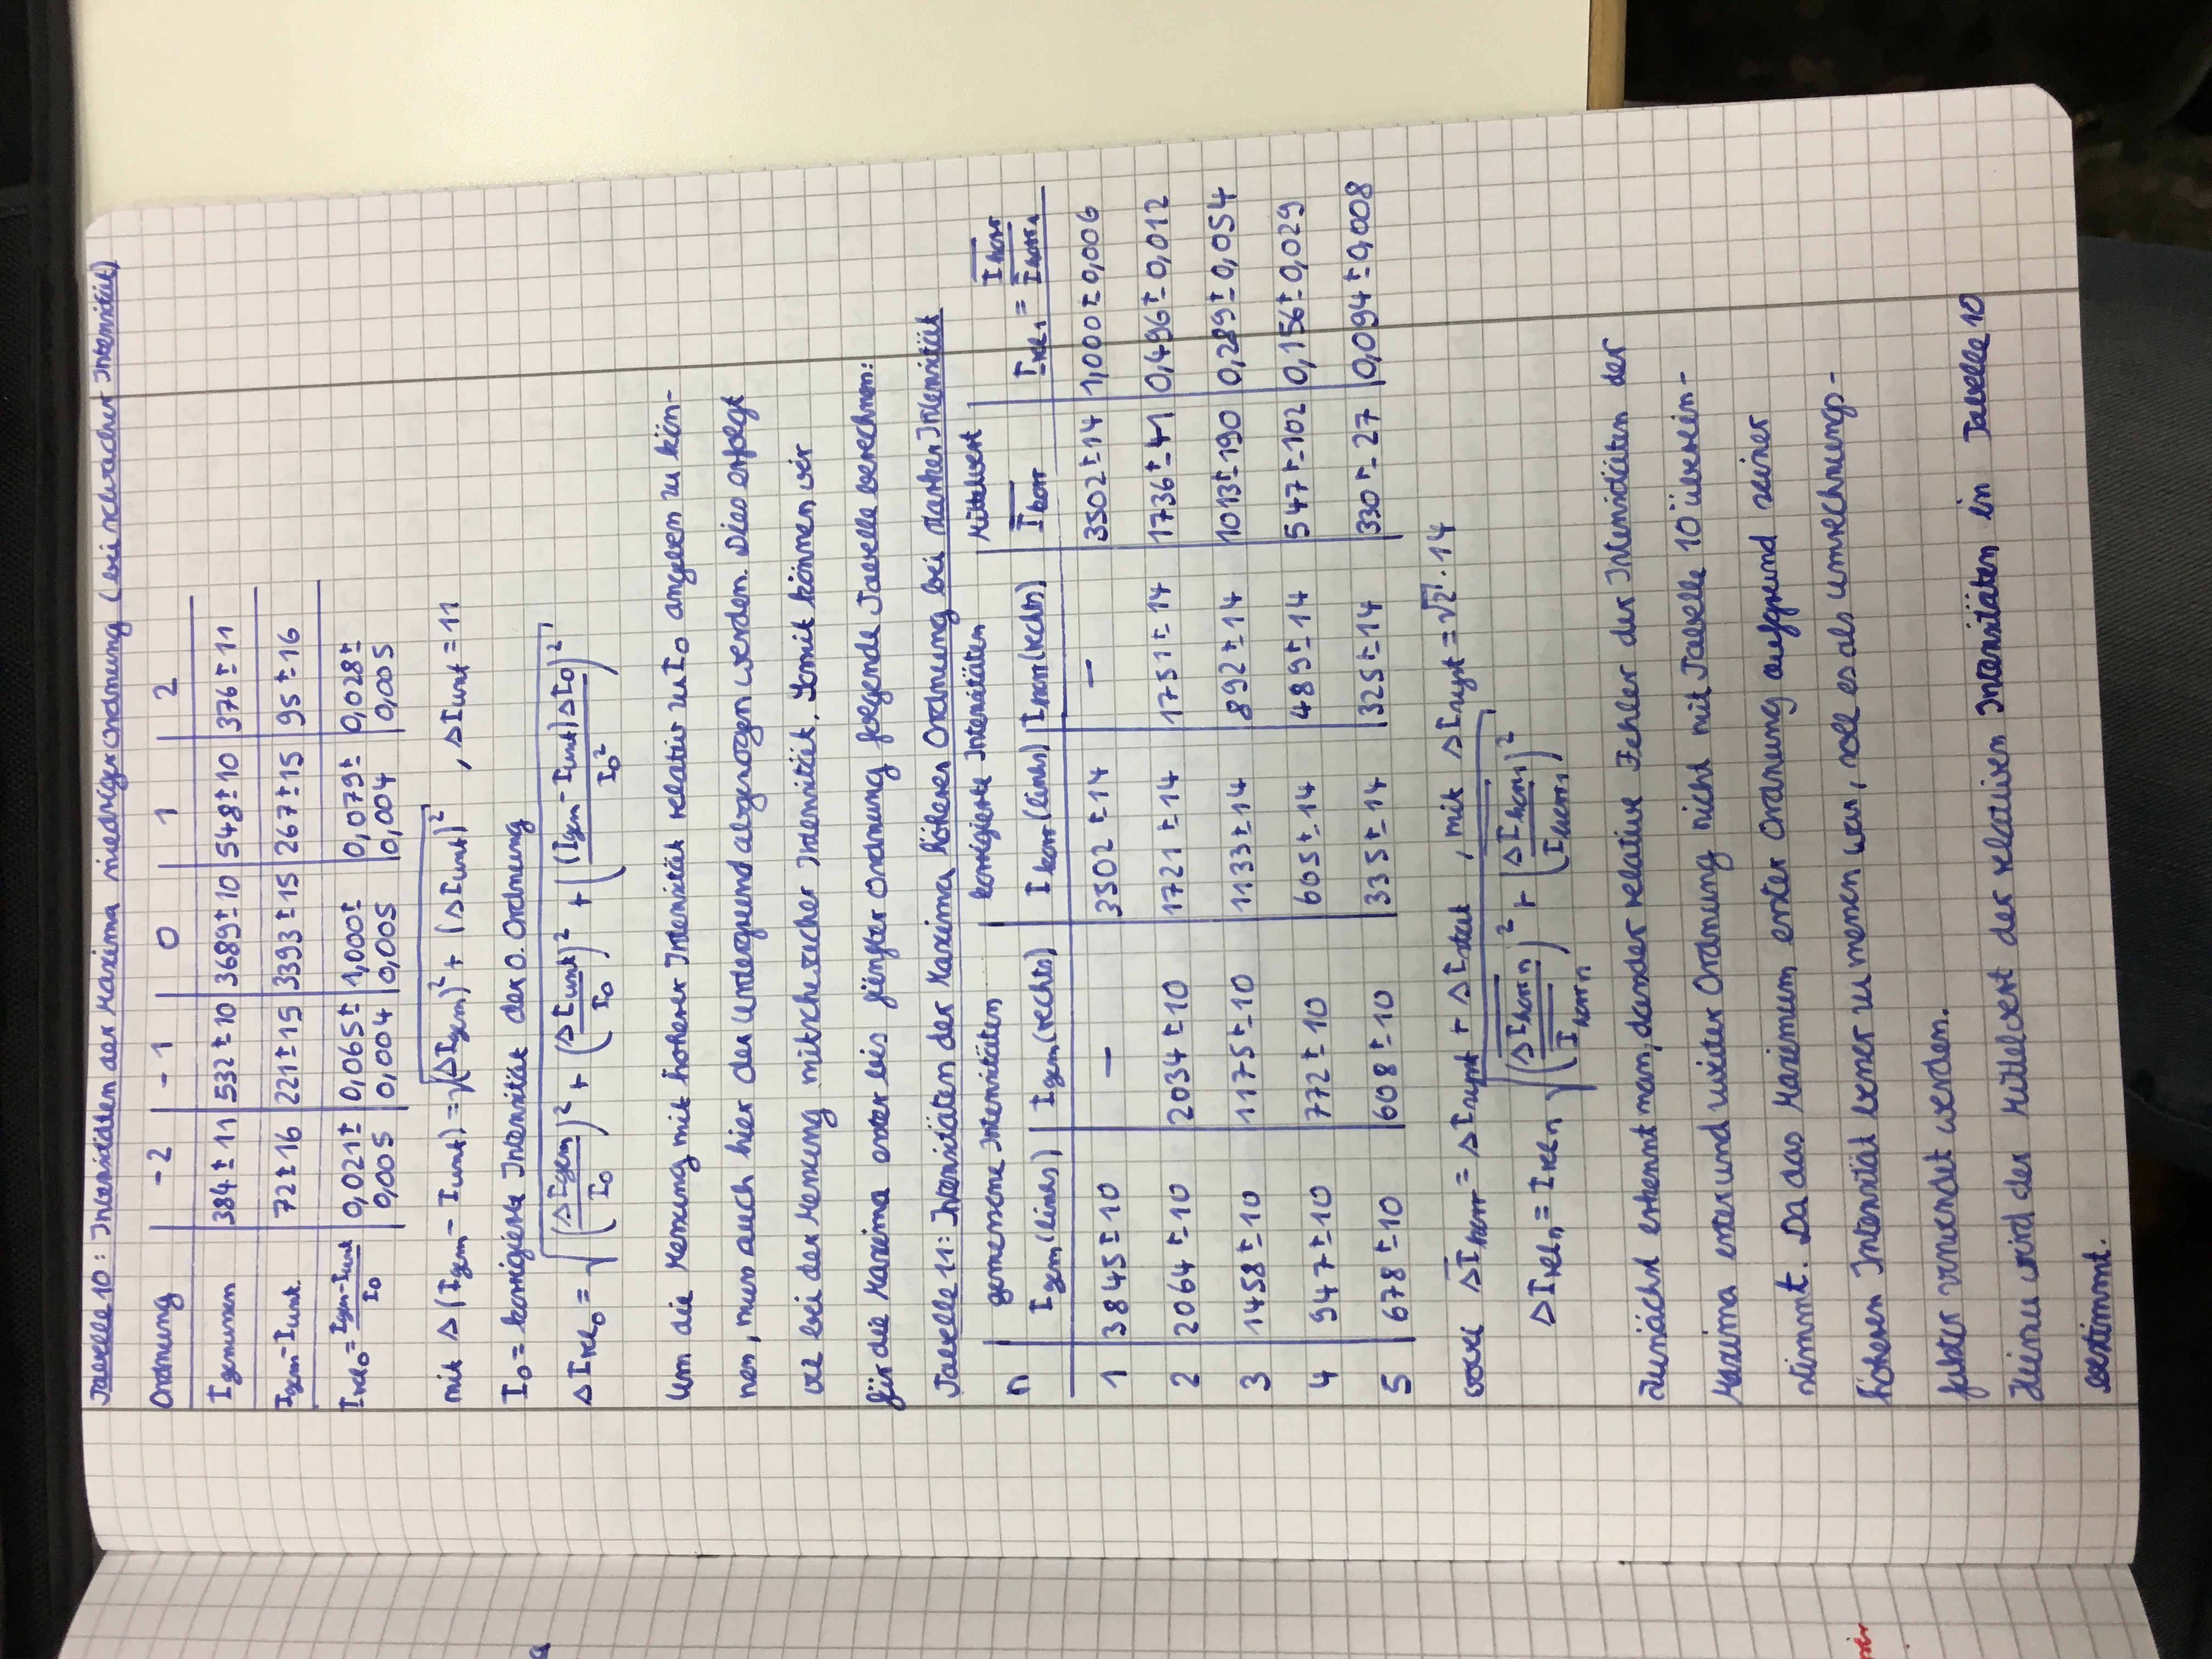 Tabelle 10: Intensitäten der Maxima niedriger Ordnung (bei schwacher Intensität)
Ordnung | -2 | -1 | 0 | 1 | 2
I gemessen | 384 ± 11 | 532 ± 10 | 3689 ± 10 | 548 ± 10 | 376 ± 11
I gem - I unt. | 72 ± 16 | 221 ± 15 | 3393 ± 15 | 267 ± 15 | 95 ± 16
I rel₀ = (I gem - I unt) / I₀ | 0,021 ± 0,005 | 0,065 ± 0,004 | 1,000 ± 0,005 | 0,079 ± 0,004 | 0,028 ± 0,005
mit Δ(I gem - I unt) = √((ΔI gem)² + (ΔI unt)²) , ΔI unt = 11
I₀ = korrigierte Intensität der 0. Ordnung
ΔI rel₀ = √((ΔI gem / I₀)² + (ΔI unt / I₀)² + ((I gem - I unt) ΔI₀ / I₀²)²)
Um die Messung mit höherer Intensität relativ zu I₀ angeben zu kön-
nen, muss auch hier der Untergrund abgezogen werden. Dies erfolgt
wie bei der Messung mit schwacher Intensität. Somit können wir
für die Maxima erster bis fünfter Ordnung folgende Tabelle berechnen:
Tabelle 11: Intensitäten der Maxima höherer Ordnung bei starker Intensität
n | gemessene Intensitäten | korrigierte Intensitäten | Mittelwert | I rel₁ = I korr / I korr₁
I gem (links) | I gem (rechts) | I korr (links) | I korr (rechts) | I korr
1 | 3845 ± 10 | - | 3502 ± 14 | - | 3502 ± 14 | 1,000 ± 0,006
2 | 2064 ± 10 | 2034 ± 10 | 1721 ± 14 | 1751 ± 14 | 1736 ± 41 | 0,496 ± 0,012
3 | 1458 ± 10 | 1175 ± 10 | 1133 ± 14 | 892 ± 14 | 1013 ± 190 | 0,289 ± 0,054
4 | 947 ± 10 | 772 ± 10 | 605 ± 14 | 489 ± 14 | 547 ± 102 | 0,156 ± 0,029
5 | 678 ± 10 | 608 ± 10 | 335 ± 14 | 325 ± 14 | 330 ± 27 | 0,094 ± 0,008
wobei ΔI korr = ΔI syst + ΔI stat , mit ΔI syst = √2 · 14
ΔI rel n = I rel n √((ΔI korr n / I korr n)² + (ΔI korr₁ / I korr₁)²)
Zunächst erkennt man, dass der relative Fehler der Intensitäten der
Maxima erster und zweiter Ordnung nicht mit Tabelle 10 überein-
stimmt. Da das Maximum erster Ordnung aufgrund seiner
höheren Intensität besser zu messen war, soll es als Umrechnungs-
faktor verwendet werden.
Hierzu wird der Mittelwert der relativen Intensitäten in Tabelle 10
bestimmt.